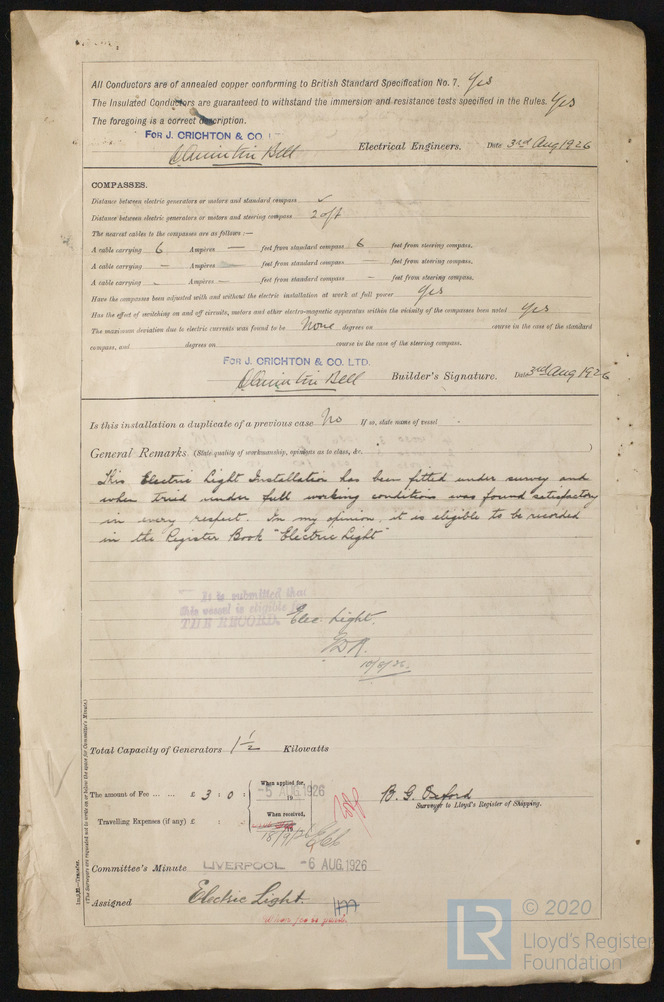 All Conductors are of annealed copper conforming to British Standard Specification No. 7. Yes
The Insulated Conductors are guaranteed to withstand the immersion and resistance tests specified in the Rules. Yes
The foregoing is a correct description.
FOR J. CRICHTON & CO
Quintin Bell Electrical Engineers. Date 3rd Aug 1926
COMPASSES.
Distance between electric generators or motors and standard compass ✓
Distance between electric generators or motors and steering compass 20ft
The nearest cables to the compasses are as follows:—
A cable carrying 6 Ampères — feet from standard compass 6 feet from steering compass.
A cable carrying — Ampères — feet from standard compass — feet from steering compass.
A cable carrying - Ampères — feet from standard compass — feet from steering compass.
Have the compasses been adjusted with and without the electric installation at work at full power Yes
Has the effect of switching on and off circuits, motors and other electro-magnetic apparatus within the vicinity of the compasses been noted Yes
The maximum deviation due to electric currents was found to be None degrees on course in the case of the standard
compass, and degrees on course in the case of the steering compass.
FOR J. CRICHTON & CO. LTD.
Quintin Bell Builder's Signature. Date 3rd Aug 1926
Is this installation a duplicate of a previous case No If so, state name of vessel
General Remarks (State quality of workmanship, opinions as to class, &c. )
This Electric Light Installation has been fitted under survey and
when tried under full working conditions was found satisfactory
in every respect. In my opinion, it is eligible to be recorded
in the Register Book "Electric Light"
It is submitted that
this vessel is eligible for
THE RECORD. Elec. Light.
10/8/26.
Total Capacity of Generators 1½ Kilowatts
The amount of Fee ... ... £ 3 : 0 :
When applied for,
-5 AUG. 1926
19
Travelling Expenses (if any) £ : :
When received,
18/9/26
B. G. Oxford
Surveyor to Lloyd's Register of Shipping.
Committee's Minute LIVERPOOL -6 AUG. 1926
Assigned Electric Light.
Im.8,25.—Transfer.
(The Surveyors are requested not to write on or below the space for Committee's Minute.)
LR
© 2020
Lloyd's Register
Foundation